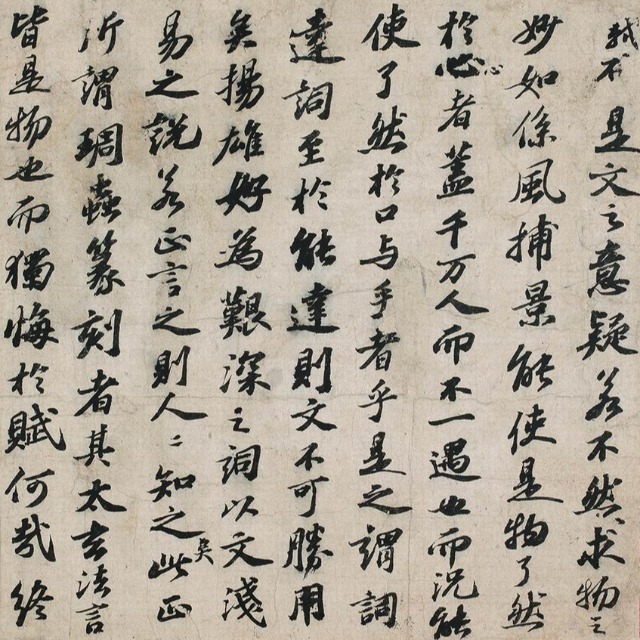 軾石 是文之意疑若不然求物之
妙如係風捕景能使是物了然
於心者蓋千万人而不一遇也而況能
使了然於口与手者乎是之謂詞
達詞至於能達則文不可勝用
矣揚雄好為艱深之詞以文淺
易之說若正言之則人〻知之矣此正
所謂琱蟲篆刻者其太玄法言
皆是物也而獨悔於賦何哉終